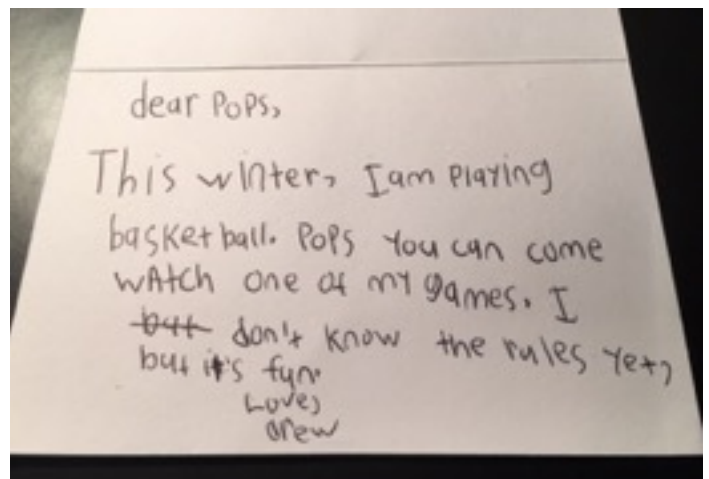 dear POPS,
This winter, I am playing
basketball. POPS You can come
WAtCH one of my games. I
but don't know the rules Yet,
but it's fun.
Love,
drew